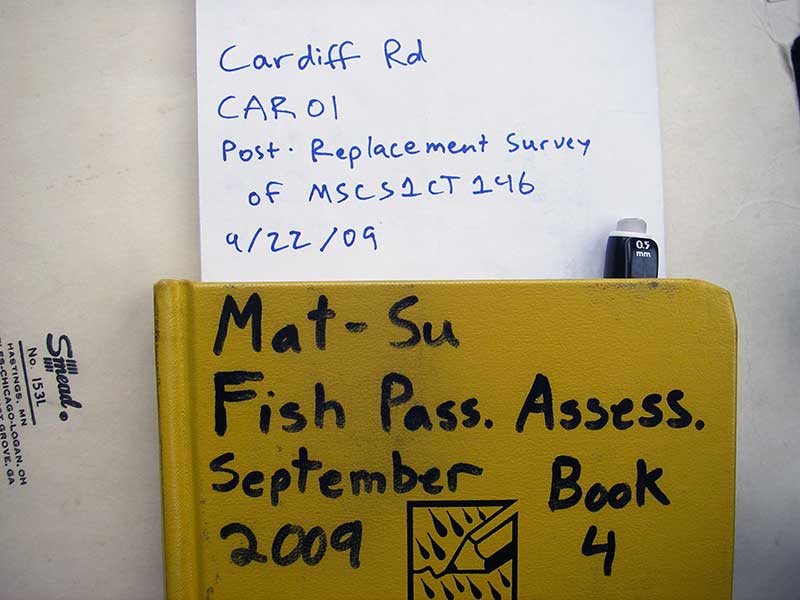 Cardiff Rd
CAR01
Post. Replacement Survey
of MSCS1CT146
9/22/09
0.5
mm
Mat-Su
Fish Pass. Assess.
September Book
2009 4
Smead
No. 153L
HASTINGS, MN
CHICAGO-LOGAN, OH
GROVE, GA